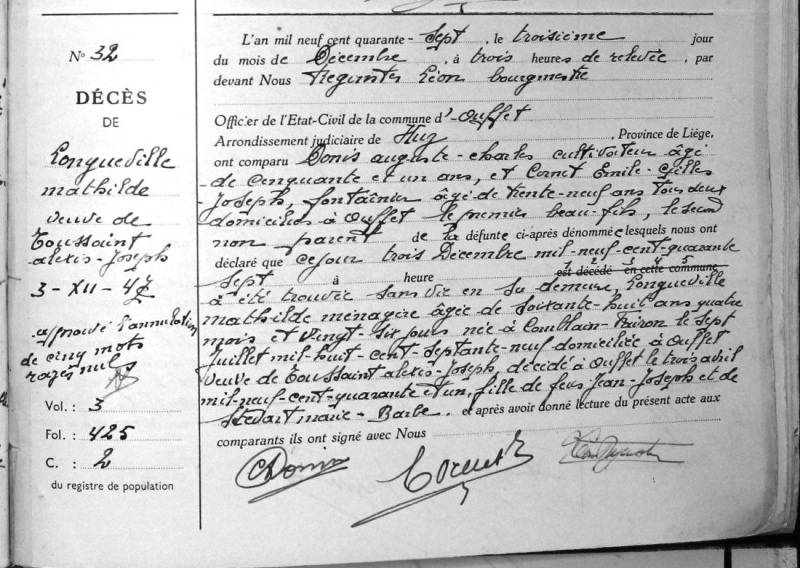 N° 32
DÉCÈS
DE
Longueville
mathilde
veuve de
Toussaint
alexis-Joseph
3-XII-47
approuvé l'annulation
de cinq mots
rayés nuls
Vol.: 3
Fol.: 425
C.: 2
du registre de population
L'an mil neuf cent quarante-sept, le troisième jour
du mois de Décembre, à trois heures de relevée, par
devant Nous Léon bourgmestre
Officier de l'Etat-Civil de la commune d'Ouffet
Arrondissement judiciaire de Huy, Province de Liége,
ont comparu Donis auguste-charles cultivateur âgé
de cinquante et un ans, et Cornet Emile-Gilles
Joseph, fontainier âgé de trente-neuf ans tous deux
domiciliés à Ouffet le premier beau-fils, le second
non parent de la défunte ci-après dénommée lesquels nous ont
déclaré que ce jour trois Décembre mil-neuf-cent-quarante
sept à heure est décédé en cette commune
1 2 3 4 5
a été trouvée sans vie en sa demeure, Longueville
mathilde ménagère âgée de soixante-huit ans quatre
mois et vingt-six jours née à Comblain-Fairon le sept
Juillet mil-huit-cent-septante-neuf domiciliée à Ouffet
veuve de Toussaint alexis-Joseph, décédé à Ouffet le trois avril
mil-neuf-cent-quarante et un, fille de feus Jean-Joseph et de
marie-Barbe. et après avoir donné lecture du présent acte aux
comparants ils ont signé avec Nous
Cornet